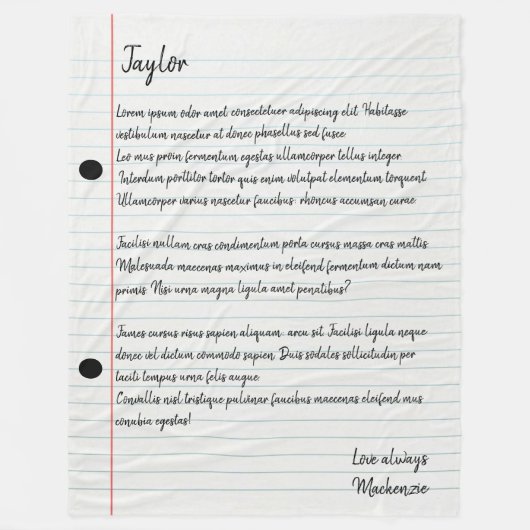 Taylor
Lorem ipsum odor amet consectetuer adipiscing elit. Habitasse
vestibulum nascetur at donec phasellus sed fusce.
Leo mus proin fermentum egestas ullamcorper tellus integer.
Interdum porttitor tortor quis enim volutpat elementum torquent.
Ullamcorper varius nascetur faucibus; rhoncus accumsan curae.
Facilisi nullam cras condimentum porta cursus massa cras mattis.
Malesuada maecenas maximus in eleifend fermentum dictum nam
primis. Nisi urna magna ligula amet penatibus?
Fames cursus risus sapien aliquam; arcu sit. Facilisi ligula neque
donec vel dictum commodo sapien. Duis sodales sollicitudin per
taciti tempus urna felis augue.
Convallis nisl tristique pulvinar faucibus maecenas eleifend mus
conubia egestas!
Love always
Mackenzie